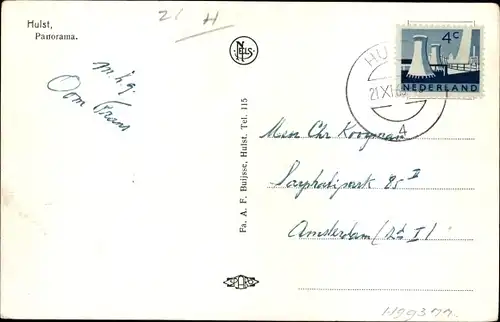 21 H
Hulst,
Panorama.
m.h.g.
Oom Frans
NELS
4c
NEDERLAND
HU
21 XI
4
Fa. A. F. Buijsse, Hulst. Tel. 115
Chr Kooyman
Sarphatipark 85 II
Amsterdam
1199377